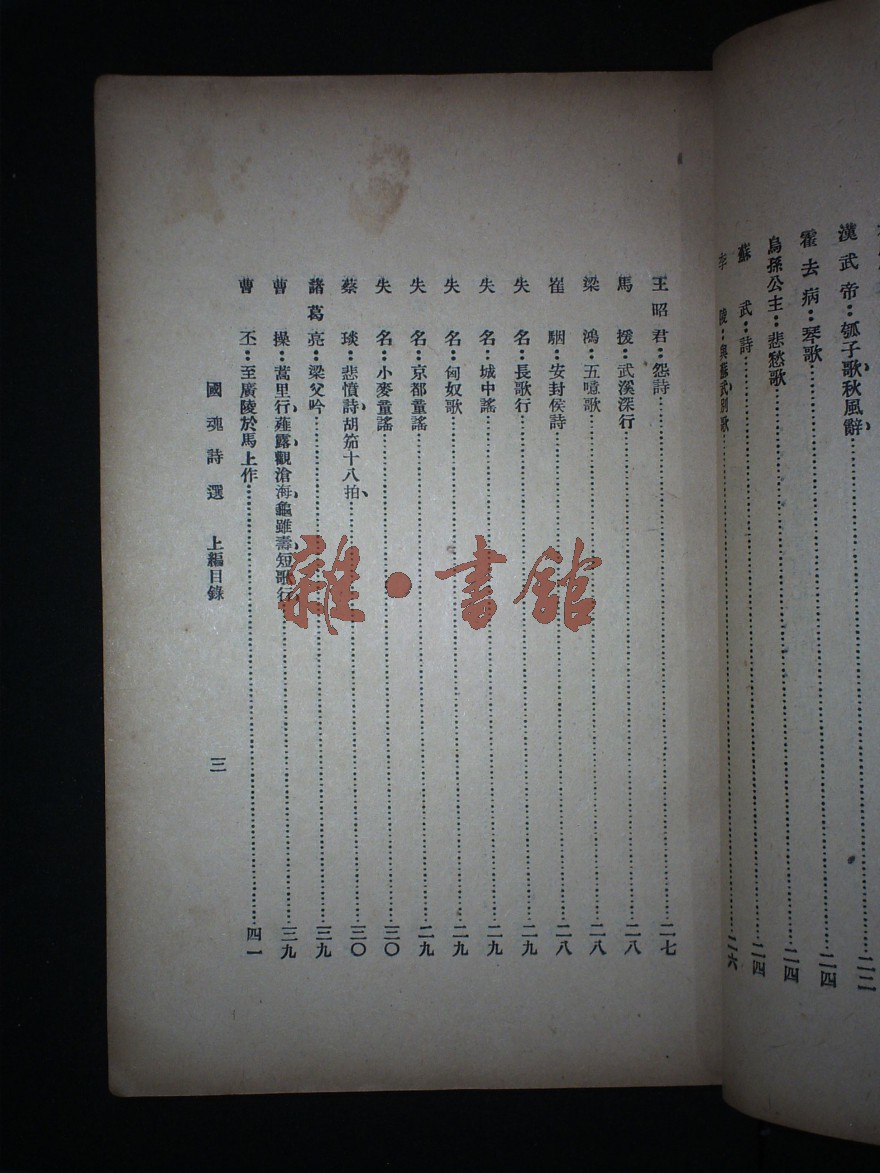 漢武帝：瓠子歌、秋風辭、……二二
霍去病：琴歌……二四
烏孫公主：悲愁歌……二四
蘇　武：詩……二四
李　陵：與蘇武別歌……二六
王昭君：怨詩……二七
馬　援：武溪深行……二八
梁　鴻：五噫歌……二八
崔　駰：安封侯詩……二八
失　名：長歌行……二九
失　名：城中謠……二九
失　名：匈奴歌……二九
失　名：京都童謠……二九
失　名：小麥童謠……三〇
蔡　琰：悲憤詩、胡笳十八拍、……三〇
諸葛亮：梁父吟……三九
曹　操：蒿里行、薤露、觀滄海、龜雖壽、短歌行、……三九
曹　丕：至廣陵於馬上作……四一
國魂詩選　上編目錄　三
雜·書館